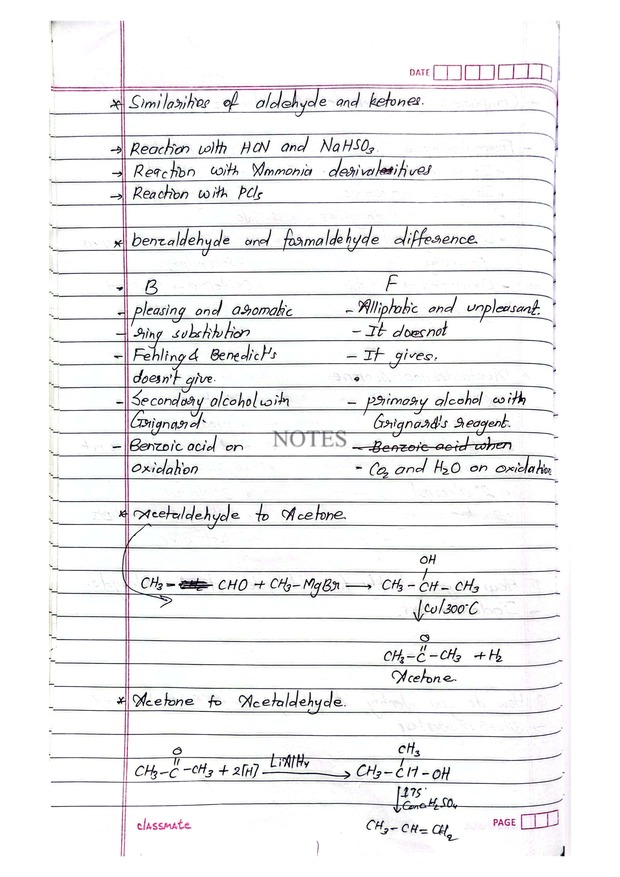 DATE
* Similarities of aldehyde and ketones.
→ Reaction with HCN and NaHSO3
→ Reaction with Ammonia derivatives
→ Reaction with PCl5
* benzaldehyde and formaldehyde difference.
B F
- pleasing and aromatic - Alliphatic and unpleasant.
- ring substitution - It doesnot
- Fehling & Benedict's - It gives.
doesn't give.
- Secondary alcohol with - primary alcohol with
Grignard. Grignard's reagent.
- Benzoic acid on NOTES - Benzoic acid when
oxidation - CO2 and H2O on oxidation
* Acetaldehyde to Acetone.
OH
CH3 - CHO + CH3-MgBr → CH3 - CH - CH3
↓Cu/300°C
O
CH3-C-CH3 + H2
Acetone.
* Acetone to Acetaldehyde.
O CH3
CH3-C-CH3 + 2[H] LiAlH4 → CH3-CH-OH
↓175°
Conc H2SO4
CH3-CH=CH2
classmate PAGE